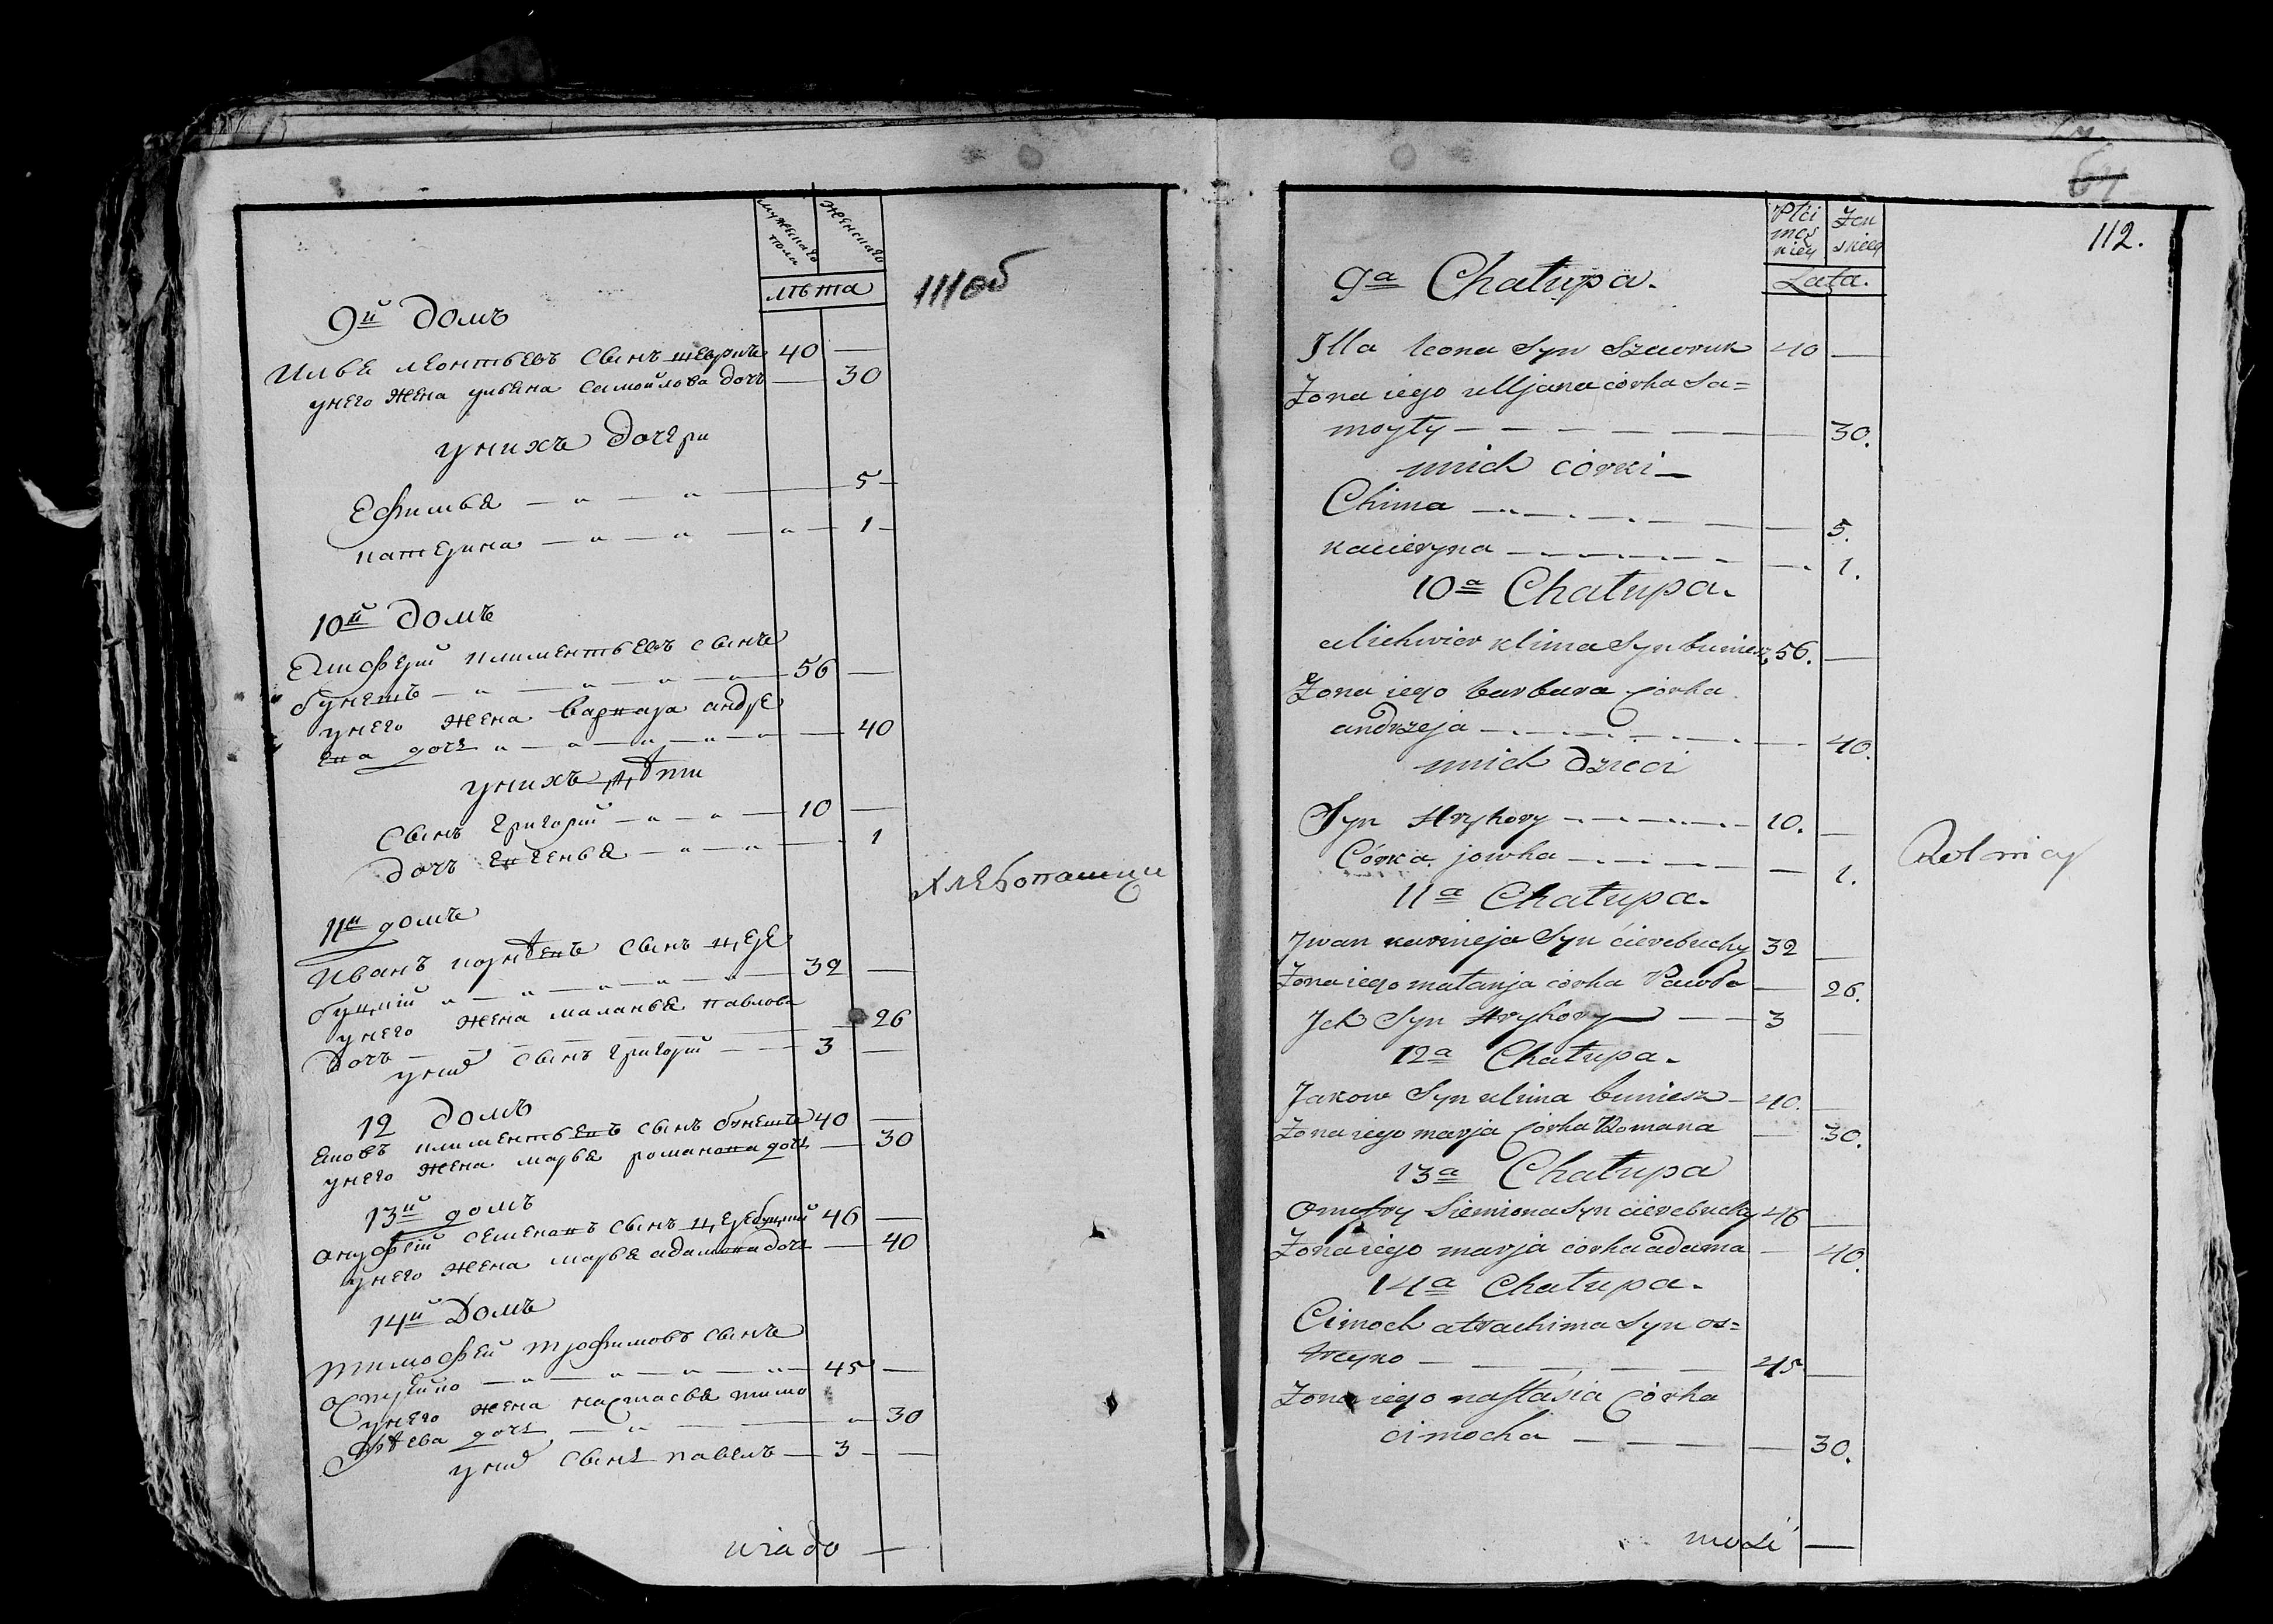 мужескаго пола
женскаго
лѣта
111об
9й домъ
илья леонтьевъ сынъ шеврукъ 40 —
унего жена ульяна самойлова дочь — 30
унихъ дочери
Ефимья — „ — „ — 5 —
катерина — „ — „ — „ — 1 —
10й домъ
Елиферий климентьевъ сынъ
бунешъ — „ — „ — „ — „ — 56 —
унего жена варвара андре
ева дочь „ — „ — „ — „ — 40
унихъ дѣти
сынъ григорий — „ — „ — 10 —
дочь — „ — „ — 1
Хлебопашцы
11й домъ
Иванъ корнѣевъ сынъ цере
буцкий „ — „ — „ — „ — 32 —
унего жена маланья павлова
дочь — 26
унихъ сынъ григорий — 3 —
12 домъ
Яковъ климентьевъ сынъ бунешъ 40 —
унего жена марья романова дочь — 30
13й домъ
онуфрій семеновъ сынъ церебуцкий 46 —
унего жена марья адамова дочь — 40
14й Домъ
тимофей трофимовъ сынъ
острейко — „ — „ — „ — 45 —
унего жена настасья тимо
фѣева дочь — „ — „ — 30
унихъ сынъ павелъ — 3 —
61
112.
Płci męskiey
Żenskiey
Lata.
9a Chałupa.
Illa leona Syn Szewruk 40 —
Żona iego ulljana córka sa=
moyły — — — — — 30.
unich córki —
Chima — — — — — 5.
kacieryna — — — — — 1.
10a Chałupa.
klima Syn buniesz 56. —
Żona iego barbara córka
andrzeja — — — — — 40.
unich dzieci
Syn Hryhory — — — — 10. —
Córka jowha — — — — 1.
Rolnicy
11a Chałupa.
Jwan karnieja Syn cierebucky 32 —
Żona iego małanja córka Pawła — 26.
Jch Syn Hryhory — — 3 —
12a Chałupa.
Jakow Syn klima buniesz — 40. —
Żona iego marja Córka Romana — 30.
13a Chałupa
Onufry Siemiona Syn cierebucky 46 —
Żona iego marja córka adama — 40.
14a Chałupa.
Cimoch atrachima Syn os=
treyko — — — — 45 —
Żona iego nastasia Córka
cimocha — — — — 30.